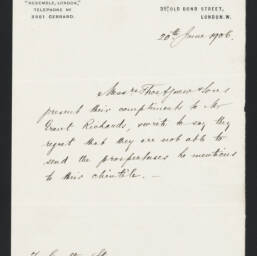 "RESEMBLE, LONDON,"
TELEPHONE Nº
3961 GERRARD.
39, OLD BOND STREET,
LONDON. W.
20th June 1906.
Messrs Thos Agnew & Sons
present their compliments to Mr
Grant Richards, & write to say they
regret that they are not able to
send the prospectuses he mentions
to their clientele. —